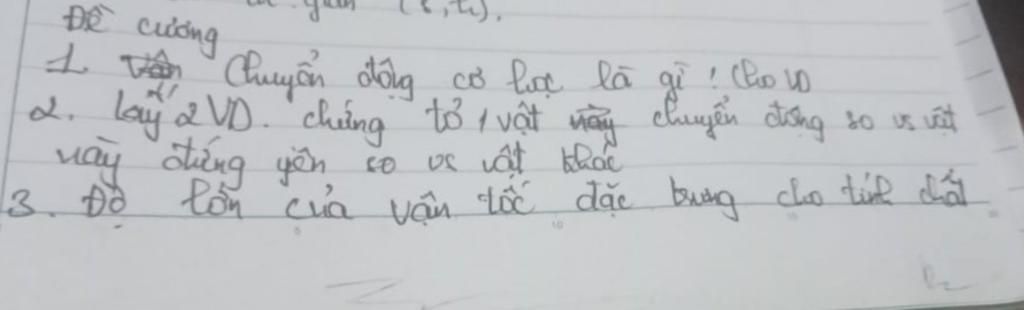 (t, t₂).
Đề cương
1. Chuyển động cơ học là gì? Cho VD
2. Lấy 2VD. chứng tỏ 1 vật chuyển động so vs vật
này đứng yên so vs vật khác
3. Độ lớn của vận tốc đặc trưng cho tính chất